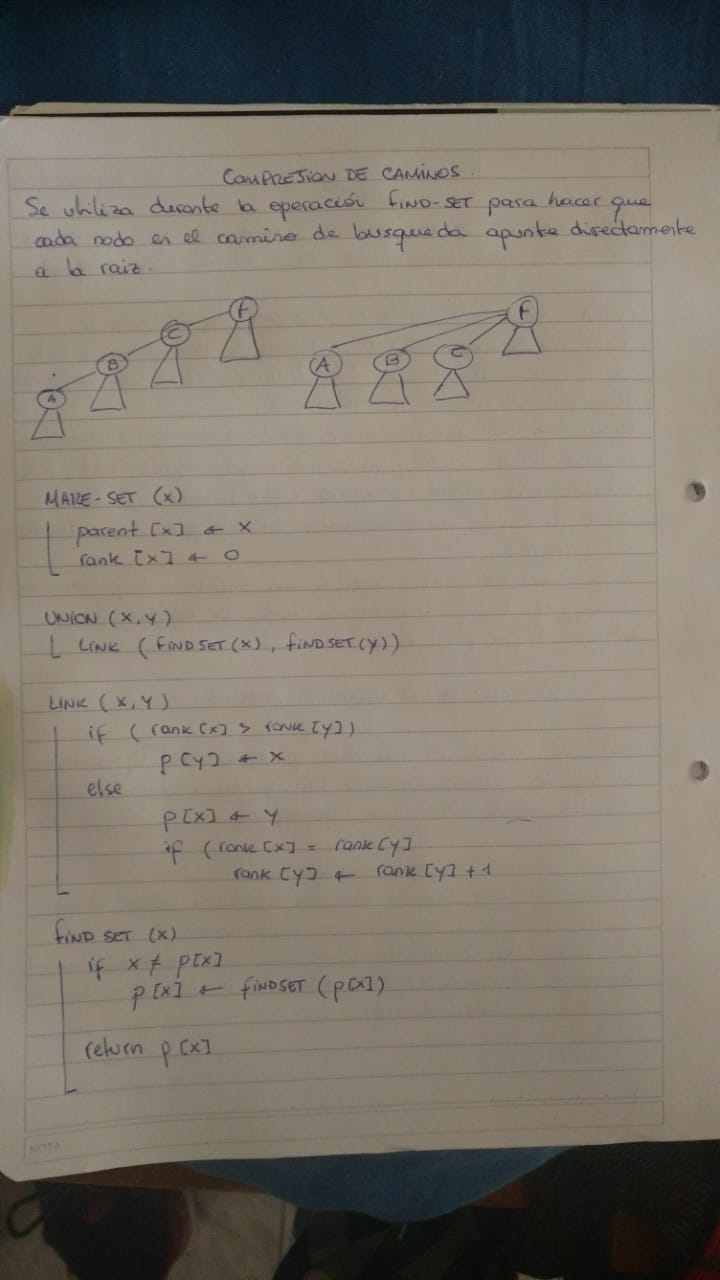 COMPRESION DE CAMINOS.
Se utiliza durante la operación FIND-SET para hacer que
cada nodo en el camino de busqueda apunte directamente
a la raiz.
A B C F
A B C F
MAKE-SET (X)
parent [x] ← X
rank [x] ← 0
UNION (X,Y)
LINK (FINDSET(X), FINDSET(Y))
LINK (X,Y)
if (rank [x] > rank [y])
p[y] ← X
else
p[x] ← Y
if (rank[x] = rank[y]
rank [y] ← rank [y] + 1
FIND SET (X)
if x ≠ p[x]
p[x] ← FINDSET (p[x])
return p[x]
NOTA